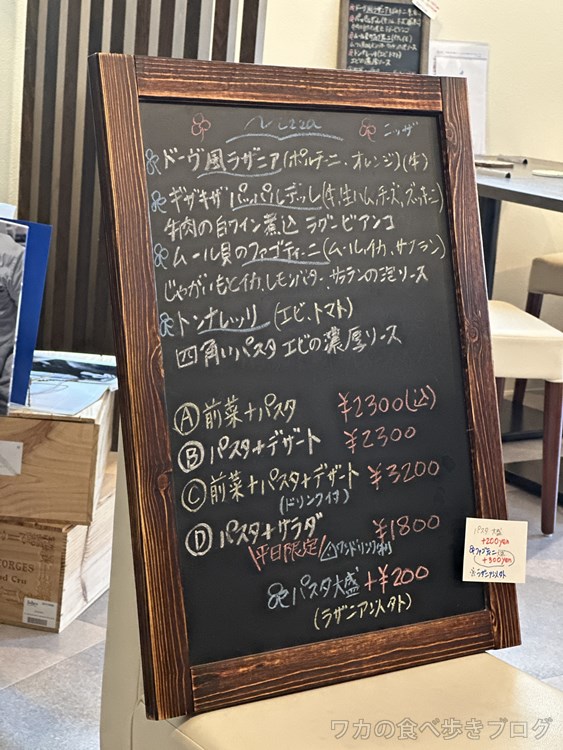 Nizza ニッザ
ドーヴ風ラザニア(ポルチーニ、オレンジ)(牛)
ギザギザ パッパルデッレ(牛,生ハム,チーズ,ズッキーニ)
牛肉の白ワイン煮込 ラグービアンコ
ムール貝のファゴティーニ(ムール,イカ,サフラン)
じゃがいもとイカ,レモンバター、サフランの泡ソース
トンナレッリ(エビ、トマト)
四角いパスタ エビの濃厚ソース
Ⓐ 前菜+パスタ ¥2300(込)
Ⓑ パスタ+デザート ¥2300
Ⓒ 前菜+パスタ+デザート ¥3200
(ドリンク付)
Ⓓ パスタ+サラダ ¥1800
\平日限定/ △ワンドリンク制
パスタ大盛 +¥200
(ラザニア以外)
パスタ大盛
+200yen
+300yen
ワカの食べ歩きブログ